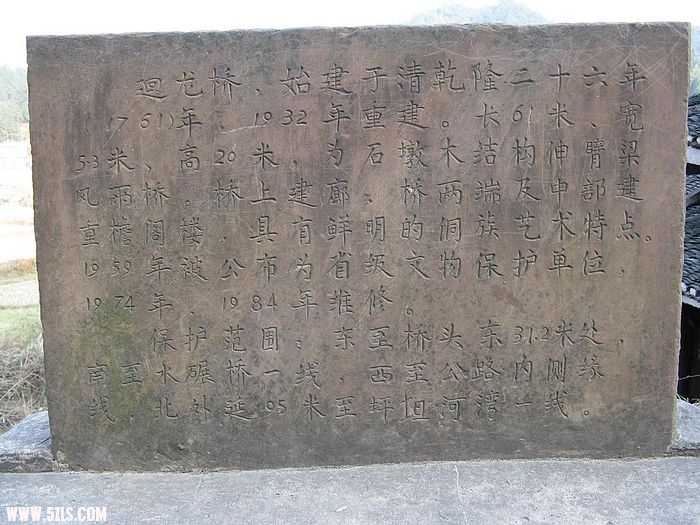 迴龙桥,始建于清乾隆二十六年
(1761)年;1932年重建。长61米、宽
53米、高20米,为石墩木结构伸臂梁
风雨桥。桥上建廊,桥两端及中部建
重檐阁楼,具有鲜明的侗族艺术特点。
1959年被公布为省级文物保护单位,
1974年、1984年维修。
保护范围:东至桥头东31.2米处,
南至水碾桥一线,西至公路内侧缘。
线,北外延105米至坪坦河湾一线。
WWW.5ZLS.COM